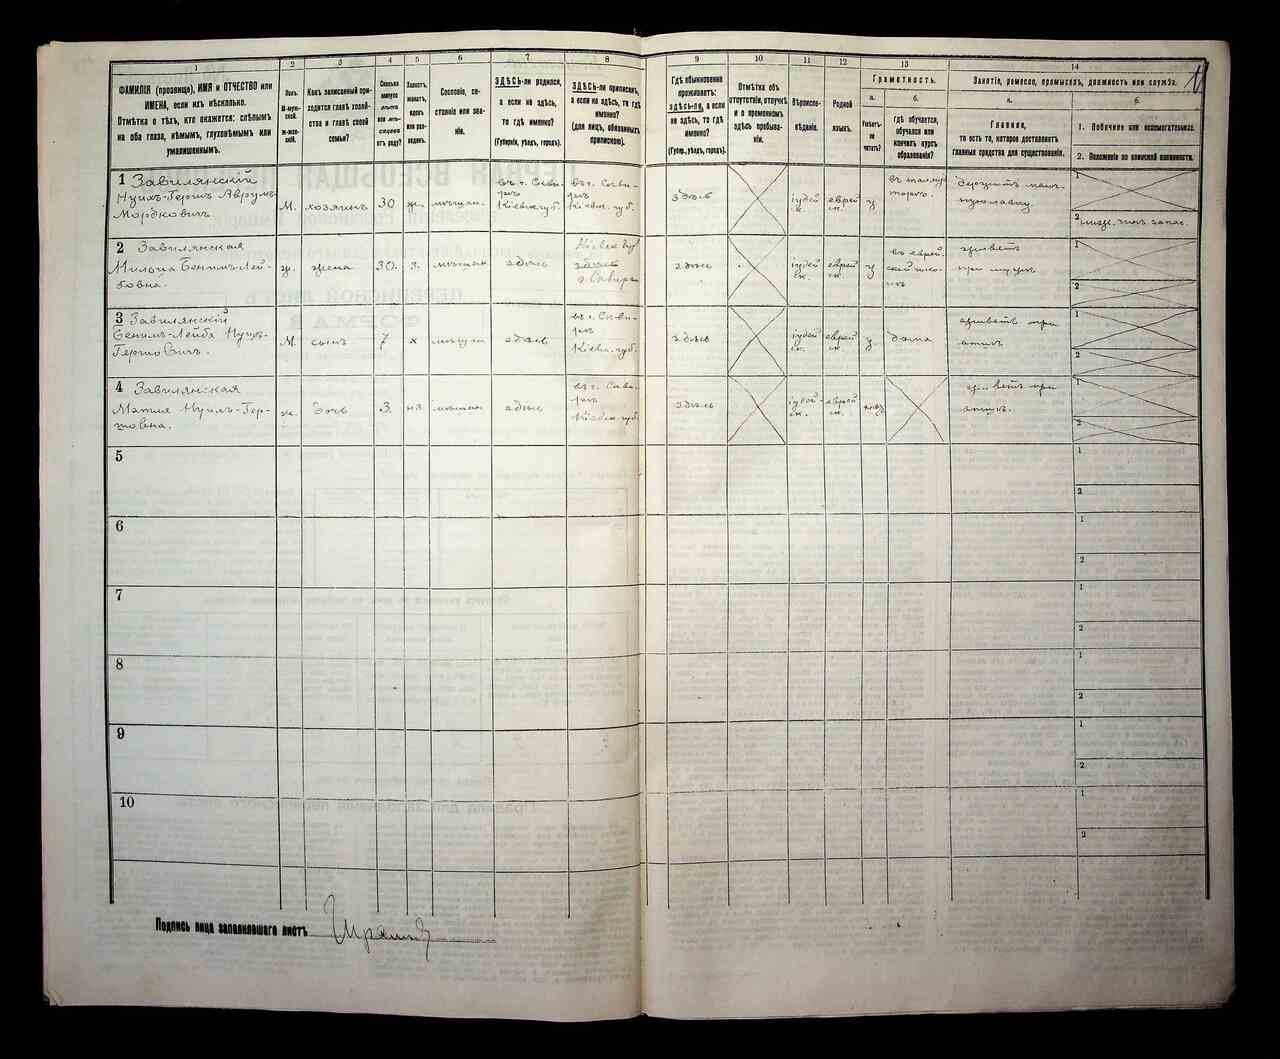 1
2
3
4
5
6
7
8
9
10
11
12
13
14
ФАМИЛІЯ (прозвище), ИМЯ и ОТЧЕСТВО или
ИМЕНА, если ихъ нѣсколько.
Отмѣтка о тѣхъ, кто окажется: слѣпымъ
на оба глаза, нѣмымъ, глухонѣмымъ или
умалишеннымъ.
Полъ.
М-муж-
ской.
ж-жен-
скій.
Какъ записанный при-
ходится главѣ хозяй-
ства и главѣ своей
семьи?
Сколько
минуло
лѣтъ
или мѣ-
сяцевъ
отъ роду?
Холостъ,
женатъ,
вдовъ
или раз-
веденъ.
Сословіе, со-
стояніе или зва-
ніе.
ЗДѢСЬ-ли родился,
а если не здѣсь,
то гдѣ именно?
(Губернія, уѣздъ, городъ).
ЗДѢСЬ-ли приписанъ,
а если не здѣсь, то гдѣ
именно?
(для лицъ, обязанныхъ
припискою).
Гдѣ обыкновенно
проживаетъ:
здѣсь-ли, а если
не здѣсь, то гдѣ
именно?
(Губерн., уѣздъ, городъ).
Отмѣтка объ
отсутствіи, отлучкѣ
и о временномъ
здѣсь пребыва-
ніи.
Вѣроиспо-
вѣданіе.
Родной
языкъ.
Грамотность.
а.
Умѣетъ-
ли
читать?
б.
гдѣ обучается,
обучался или
кончилъ курсъ
образованія?
Занятіе, ремесло, промыселъ, должность или служба.
а.
Главное,
то есть то, которое доставляетъ
главныя средства для существованія.
б.
1. Побочное или вспомогательное.
2. Положеніе по воинской повинности.
1 Завилянскій
Нухимъ-Гершъ Аврумъ-
Мордковичъ
М.
хозяинъ
30
ж.
мѣщан.
въ г.Скви-
рѣ
Кіевск. губ.
въ г. Скви-
рѣ
Кіевск. губ.
здѣсь
іудей
ск.
еврей
ск.
1
2
2 Завилянская
Бенимъ-Лей-
бовна.
ж.
жена
30.
з.
мѣщан
здѣсь
здѣсь
іудей
ск.
еврей
ск.
въ еврей.
ской шко-
лѣ
при мужѣ
1
2
3 Завилянскій
Бенимъ-Лейба Нухимъ-
Гершовичъ.
М.
сынъ
7
х
мѣщан
здѣсь
въ г. Скви-
рѣ
Кіевск. губ.
здѣсь
іудей
ск.
еврей
ск.
дома
живетъ при
отцѣ
1
2
4 Завилянская
Нухимъ-Гер-
шовна.
ж.
дочь
3.
мѣщан
здѣсь
въ г. Скви-
рѣ
Кіевск. губ.
здѣсь
іудей-
ск.
еврей
ск.
живетъ при
отцѣ.
1
2
5
1
2
6
1
2
7
1
2
8
1
2
9
1
2
10
1
2
Подпись лица заполнявшаго листъ